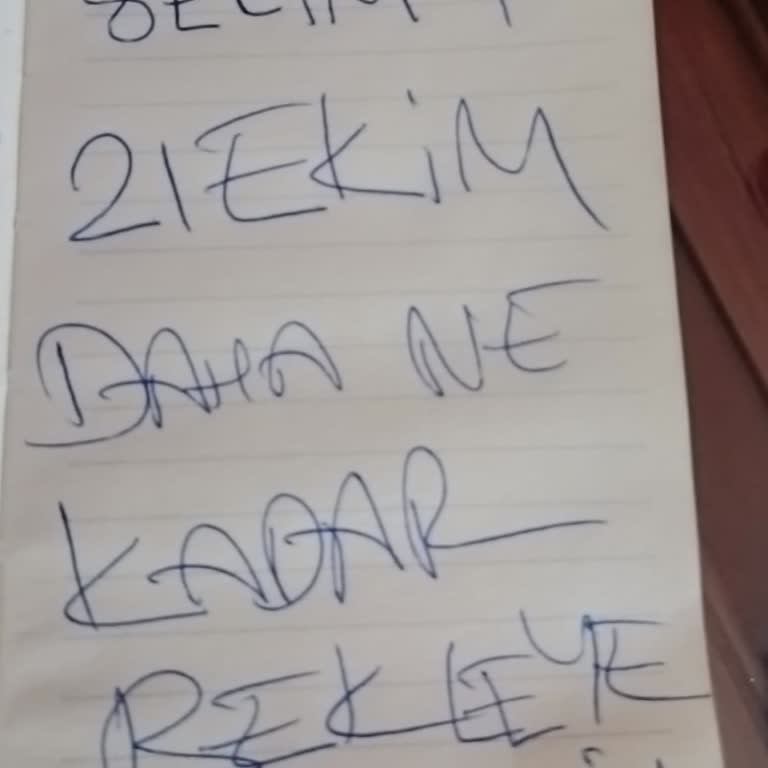 21 EKİM
DAHA NE
KADAR
BEKLEYE